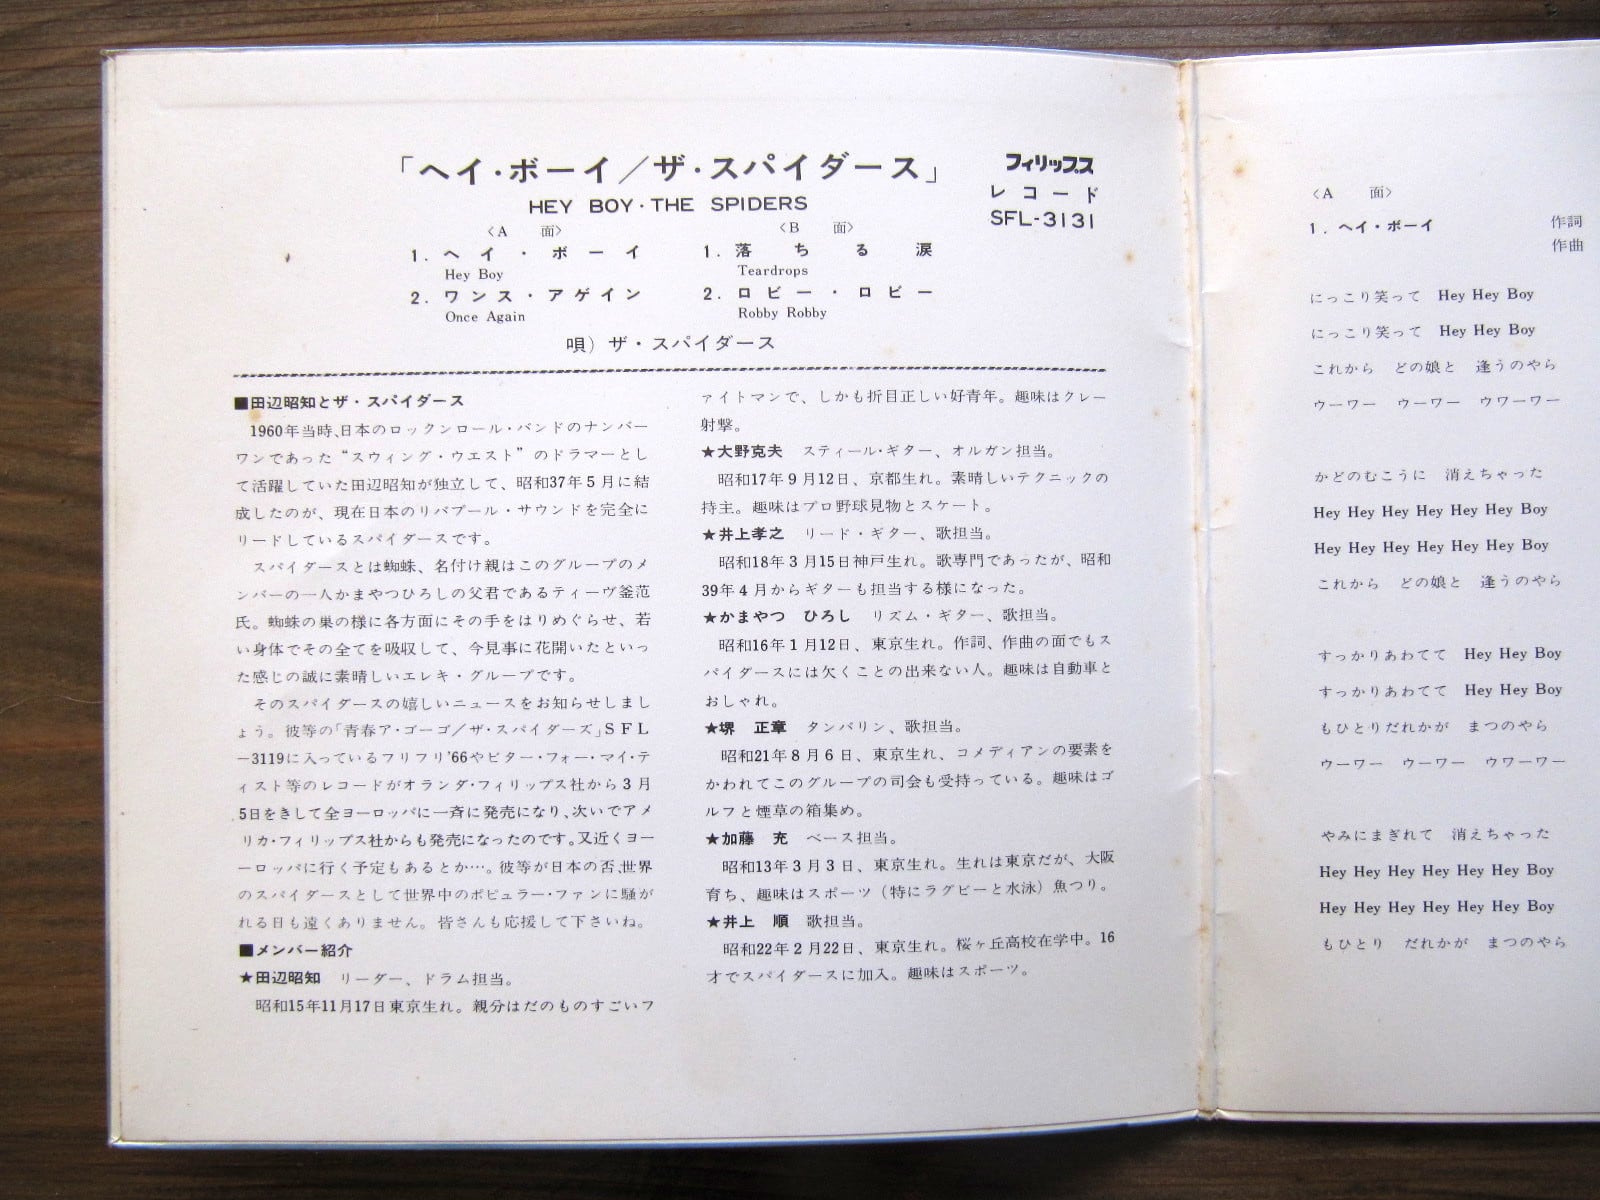 「ヘイ・ボーイ／ザ・スパイダース」
HEY BOY・THE SPIDERS
フィリップス
レコード
SFL-3131
〈A　面〉
1．ヘイ・ボーイ
Hey Boy
2．ワンス・アゲイン
Once Again
〈B　面〉
1．落ちる涙
Teardrops
2．ロビー・ロビー
Robby Robby
唄）ザ・スパイダース
■田辺昭知とザ・スパイダース
1960年当時、日本のロックンロール・バンドのナンバー
ワンであった“スウィング・ウエスト”のドラマーとし
て活躍していた田辺昭知が独立して、昭和37年5月に結
成したのが、現在日本のリバプール・サウンドを完全に
リードしているスパイダースです。
スパイダースとは蜘蛛、名付け親はこのグループのメ
ンバーの一人かまやつひろしの父君であるティーヴ釜范
氏。蜘蛛の巣の様に各方面にその手をはりめぐらせ、若
い身体でその全てを吸収して、今見事に花開いたといっ
た感じの誠に素晴しいエレキ・グループです。
そのスパイダースの嬉しいニュースをお知らせしまし
ょう。彼等の「青春ア・ゴーゴ／ザ・スパイダーズ」SFL
－3119に入っているフリフリ’66やビター・フォー・マイ・テ
ィスト等のレコードがオランダ・フィリップス社から3月
5日をきして全ヨーロッパに一斉に発売になり、次いでアメ
リカ・フィリップス社からも発売になったのです。又近くヨー
ーロッパに行く予定もあるとか…。彼等が日本の否、世界
のスパイダースとして世界中のポピュラー・ファンに騒が
れる日も遠くありません。皆さんも応援して下さいね。
■メンバー紹介
★田辺昭知　リーダー、ドラム担当。
昭和15年11月17日東京生れ。親分はだのものすごいフ
ァイトマンで、しかも折目正しい好青年。趣味はクレー
射撃。
★大野克夫　スティール・ギター、オルガン担当。
昭和17年9月12日、京都生れ。素晴しいテクニックの
持主。趣味はプロ野球見物とスケート。
★井上孝之　リード・ギター、歌担当。
昭和18年3月15日神戸生れ。歌専門であったが、昭和
39年4月からギターも担当する様になった。
★かまやつ　ひろし　リズム・ギター、歌担当。
昭和16年1月12日、東京生れ。作詞、作曲の面でもス
パイダースには欠くことの出来ない人。趣味は自動車と
おしゃれ。
★堺　正章　タンバリン、歌担当。
昭和21年8月6日、東京生れ、コメディアンの要素を
かわれてこのグループの司会も受持っている。趣味はゴ
ルフと煙草の箱集め。
★加藤　充　ベース担当。
昭和13年3月3日、東京生れ。生れは東京だが、大阪
育ち、趣味はスポーツ（特にラグビーと水泳）魚つり。
★井上　順　歌担当。
昭和22年2月22日、東京生れ。桜ヶ丘高校在学中。16
才でスパイダースに加入。趣味はスポーツ。
〈A　面〉
1．ヘイ・ボーイ　作詞
作曲
にっこり笑って　Hey Hey Boy
にっこり笑って　Hey Hey Boy
これから　どの娘と　逢うのやら
ウーワー　ウーワー　ウワーワー
かどのむこうに　消えちゃった
Hey Hey Hey Hey Hey Hey Boy
Hey Hey Hey Hey Hey Hey Boy
これから　どの娘と　逢うのやら
すっかりあわてて　Hey Hey Boy
すっかりあわてて　Hey Hey Boy
もひとりだれかが　まつのやら
ウーワー　ウーワー　ウワーワー
やみにまぎれて　消えちゃった
Hey Hey Hey Hey Hey Hey Boy
Hey Hey Hey Hey Hey Hey Boy
もひとり　だれかが　まつのやら